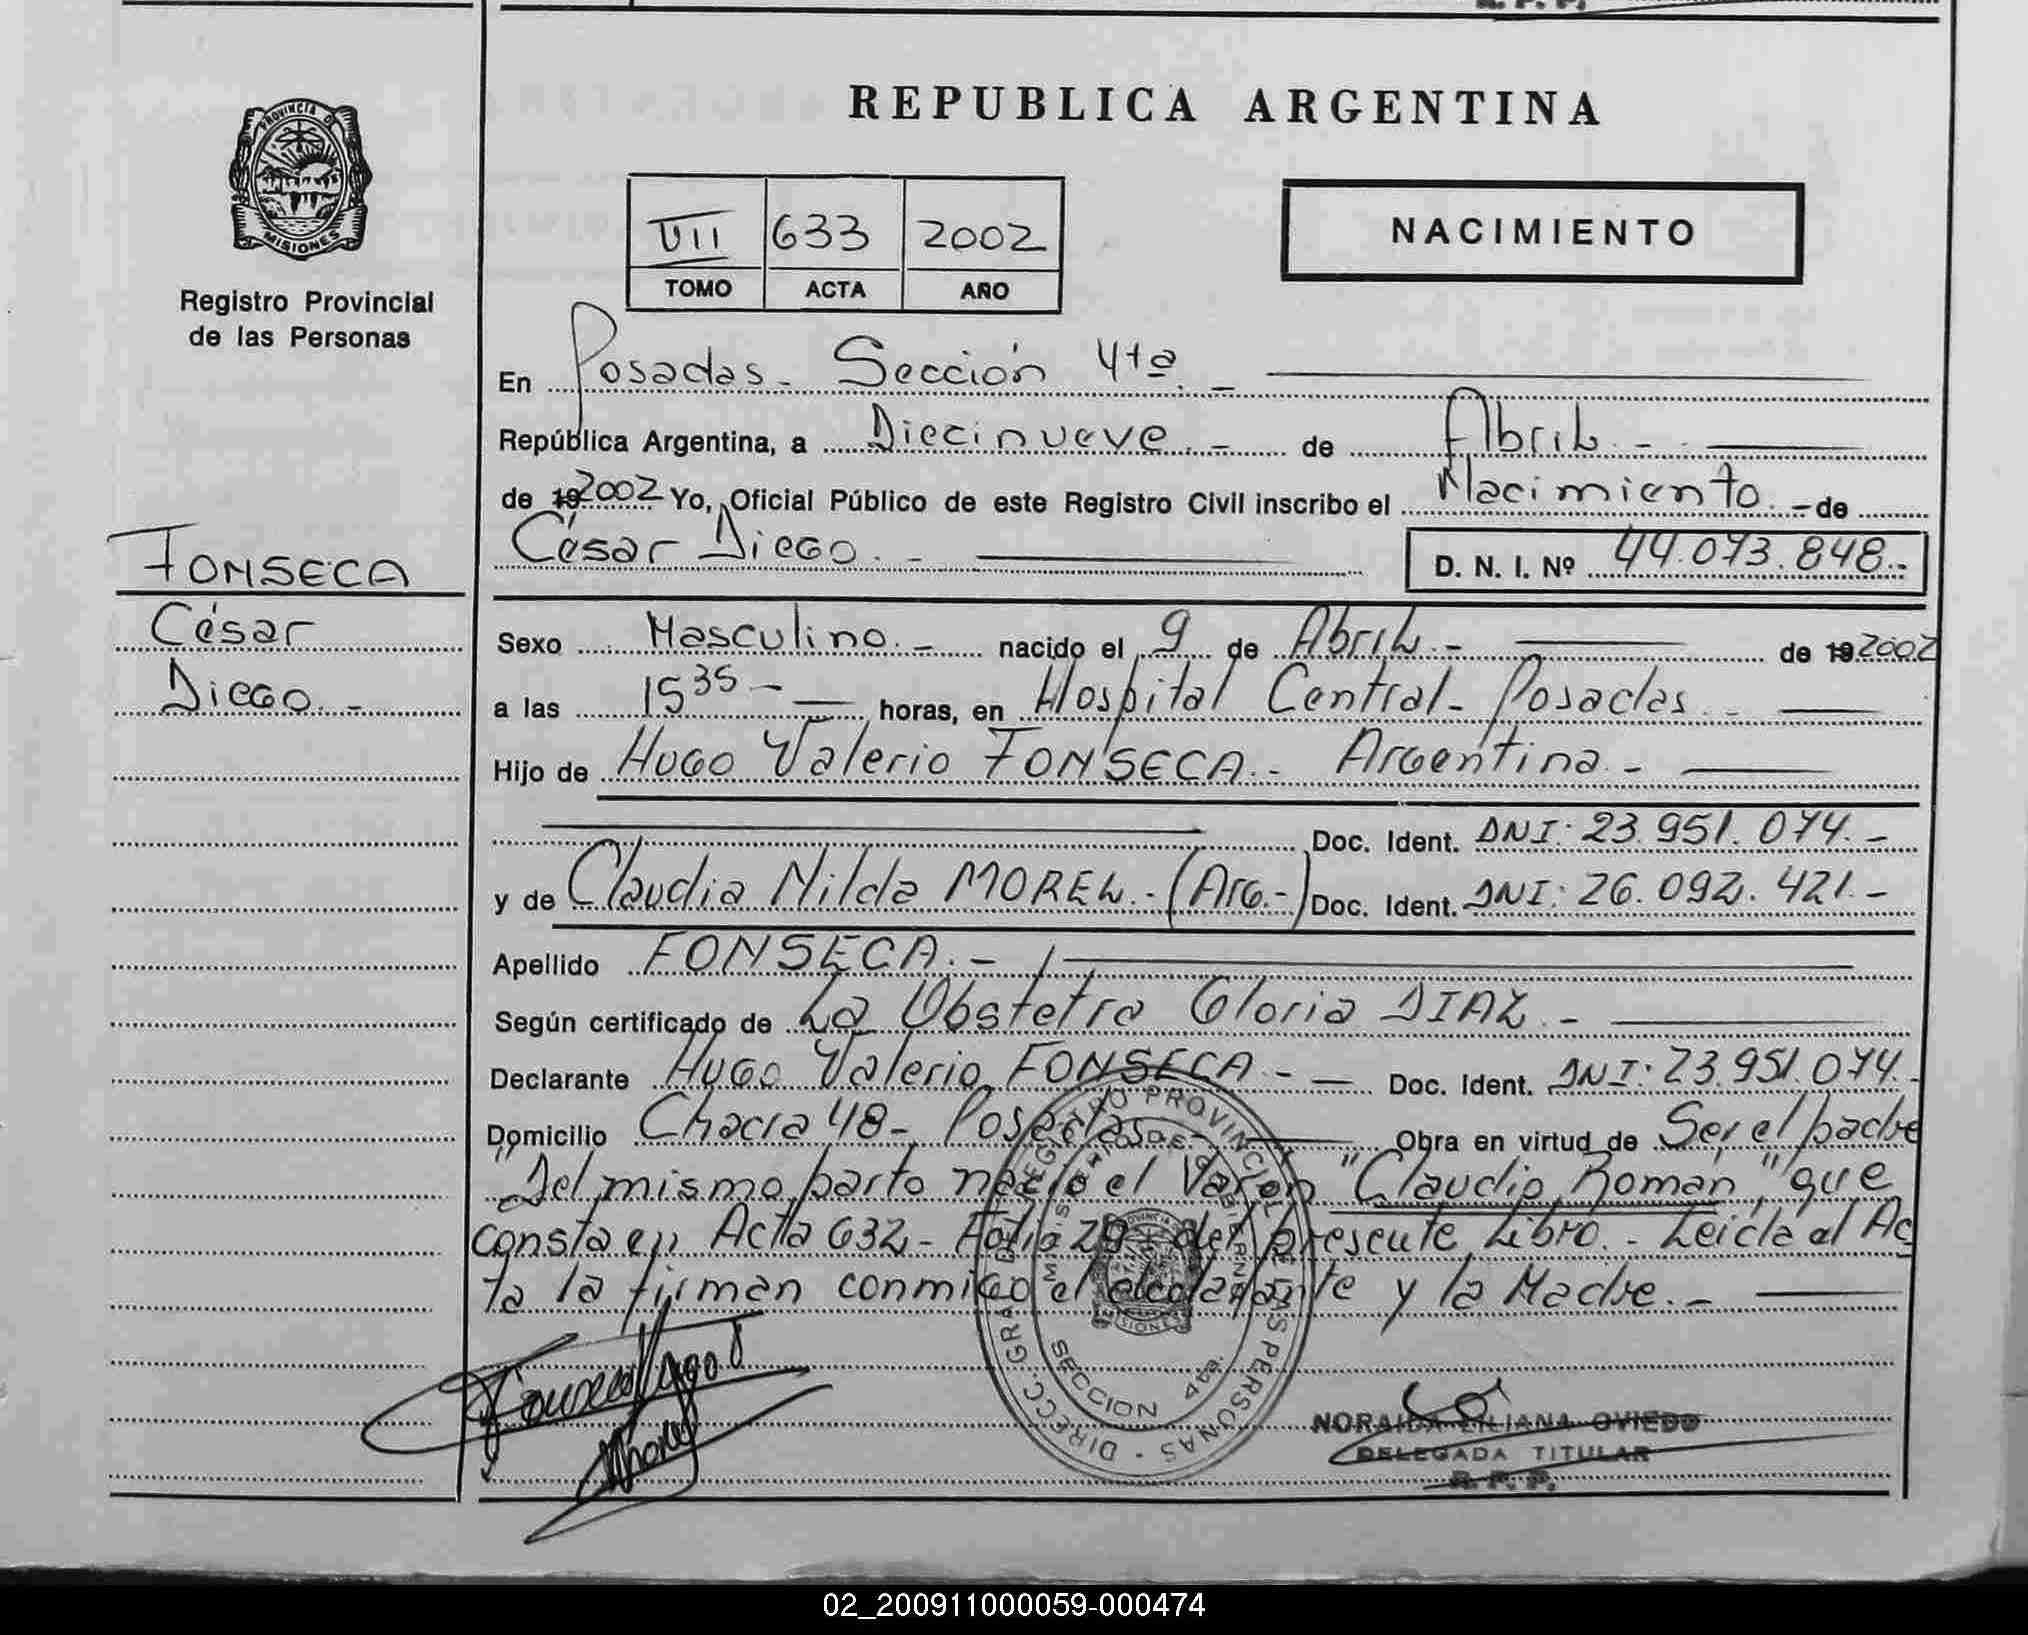 R. P. P.
REPUBLICA ARGENTINA
PROVINCIA D
MISIONES
Registro Provincial
de las Personas
VII 633 2002
TOMO ACTA AÑO
NACIMIENTO
En Posadas - Sección 4ta. -
República Argentina, a Diecinueve. - de Abril. -
de 192002 Yo, Oficial Público de este Registro Civil inscribo el Nacimiento. - de
César Diego. - D. N. I. Nº 44.073.848.-
FONSECA
César
Diego. -
Sexo Masculino. - nacido el 9 de Abril. - de 192002
a las 15 35 - horas, en Hospital Central - Posadas. -
Hijo de Hugo Valerio FONSECA. - Argentina. -
Doc. Ident. DNI: 23.951.074. -
y de Claudia Nilda MOREL. - (Arg.-) Doc. Ident. DNI: 26.092.421. -
Apellido FONSECA. -
Según certificado de La Obstetra Gloria DIAZ. -
Declarante Hugo Valerio FONSECA - Doc. Ident. DNI: 23.951.074.-
Domicilio Chacra 48 - Posadas - Obra en virtud de Ser el padre
"Del mismo parto nacio el Varon "Claudio Román" que
consta en Acta 632 - Folio del presente Libro. - Leida al Ac
ta la firman conmigo el declarante y la Madre. -
DIRECC. GRAL. DEL REGISTRO PROVINCIAL DE LAS PERSONAS
MINISTERIO DE GOBIERNO
MISIONES
SECCION 4ta.
Fonseca Hugo V
NORAIDA LILIANA OVIEDO
DELEGADA TITULAR
R. P. P.
02_200911000059-000474